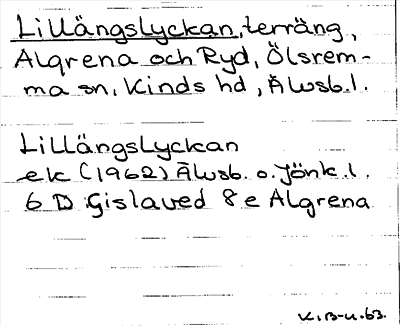 Lillängslyckan, terräng,
Algrena och Ryd, Ölsrem-
ma sn, Kinds hd, Älvsb.l.
Lillängslyckan
ek (1962) Älvsb. o. Jönk.l.
6 D Gislaved 8e Algrena
K.B-u.63.